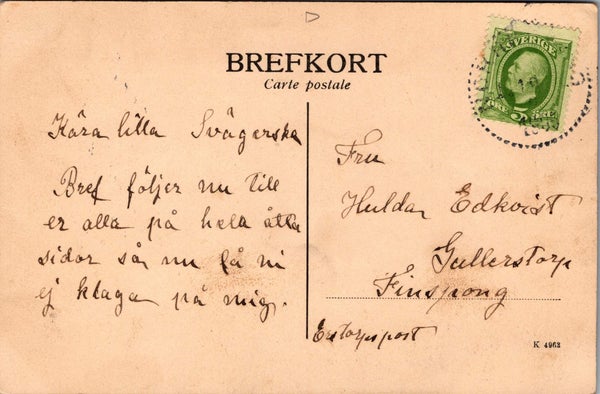 BREFKORT
Carte postale
SVERIGE
5 ÖRE
Kära lilla Svägerska
Bref följer nu till
er alla på hela åtta
sidor så nu få ni
ej klaga på mig.
Fru
Huldar Edkvist
Gullerstorp
Finspong
K 4963